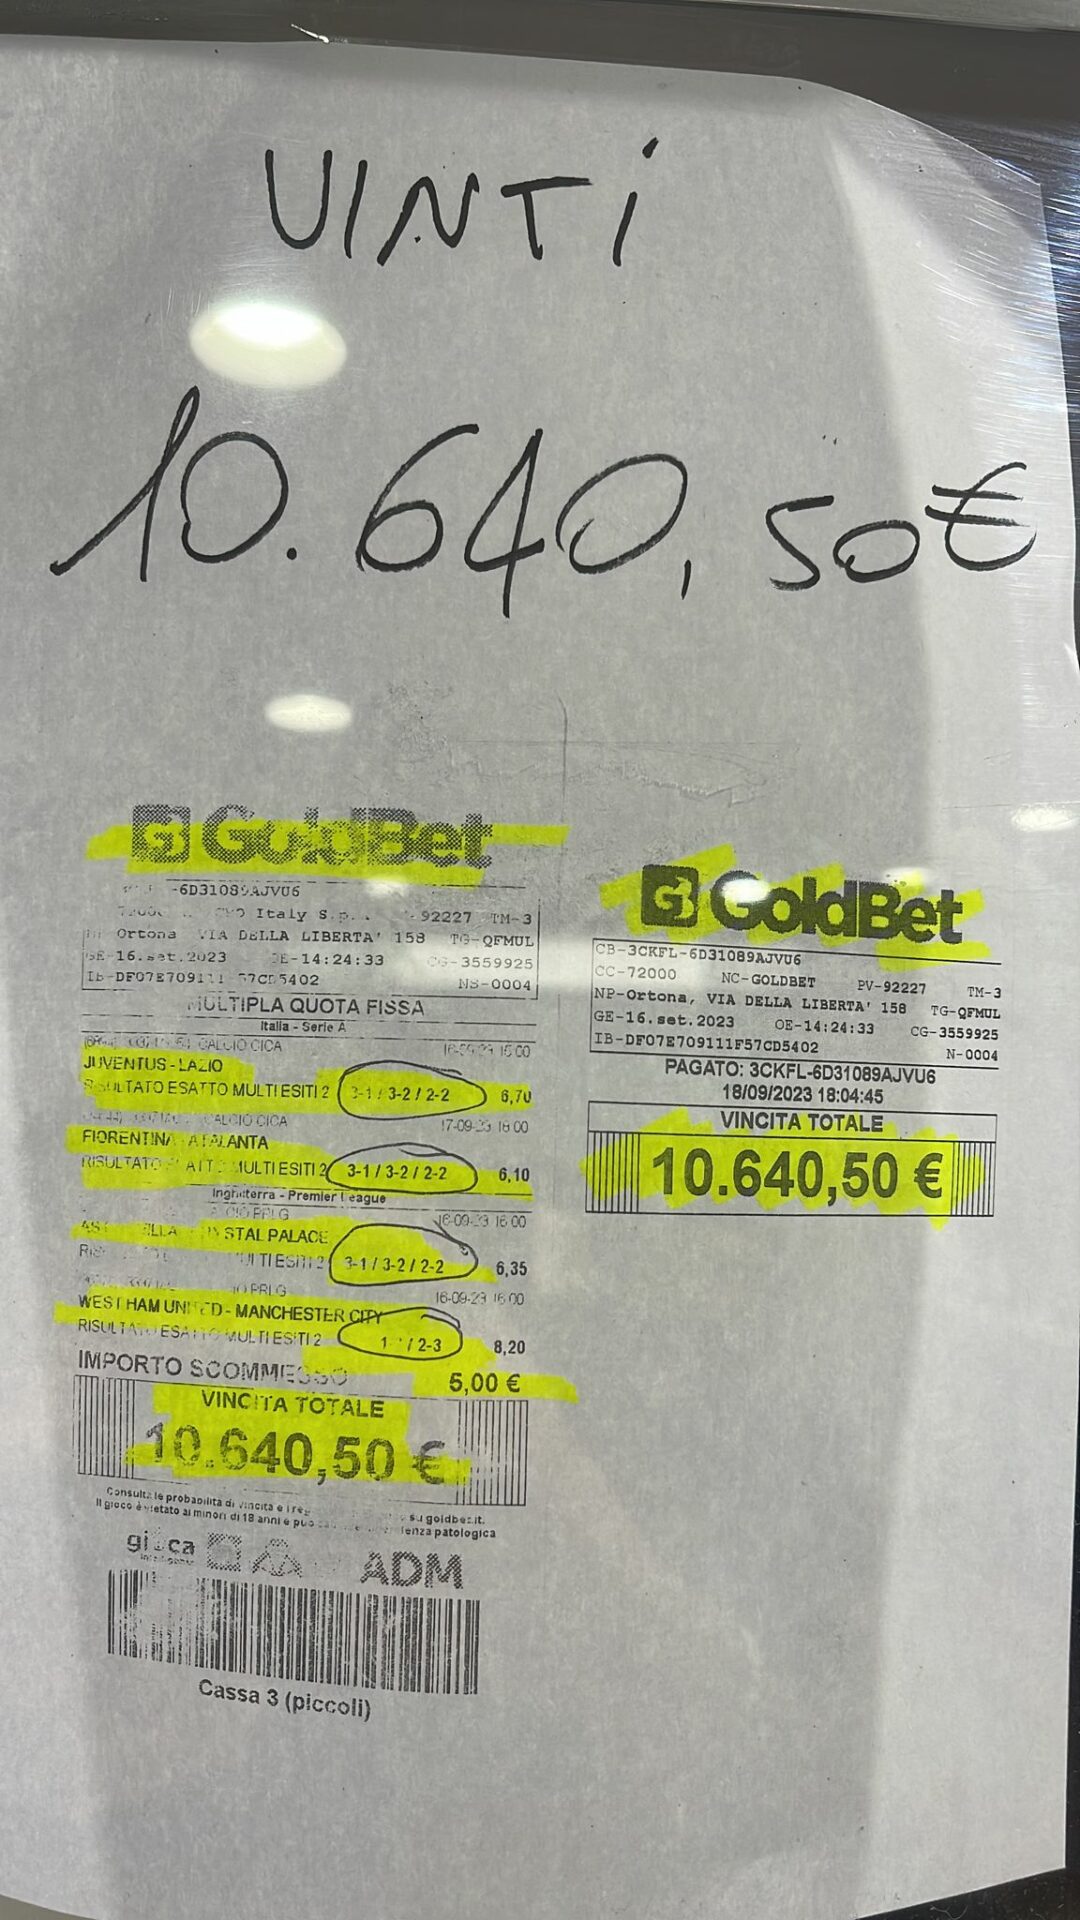 VINTI
10.640,50€
GoldBet
-6D31089AJVU6
Italy S.p. 92227 TM-3
Ortona VIA DELLA LIBERTA' 158 TG-QFMUL
GE-16.set.2023 OE-14:24:33 CG-3559925
IB-DF07E709111 57CD5402 NS-0004
MULTIPLA QUOTA FISSA
Italia - Serie A
CALCIO CICA 16-09-23 15:00
JUVENTUS - LAZIO
RISULTATO ESATTO MULTIESITI 2 3-1 / 3-2 / 2-2 6,70
CALCIO CICA 17-09-23 18:00
FIORENTINA - ATALANTA
RISULTATO MULTIESITI 2 3-1 / 3-2 / 2-2 6,10
Inghilterra - Premier League
16-09-23 16:00
STAL PALACE
3-1 / 3-2 / 2-2 6,35
16-09-23 16:00
WEST HAM UNITED - MANCHESTER CITY
RISULTATO ESATTO MULTIESITI 2 / 2-3 8,20
IMPORTO SCOMMESSO 5,00 €
VINCITA TOTALE
10.640,50 €
Consulta le probabilità di vincita e su goldbet.it.
Il gioco è vietato ai minori di 18 anni e può patologica
ADM
Cassa 3 (piccoli)
GoldBet
CB-3CKFL-6D31089AJVU6
CC-72000 NC-GOLDBET PV-92227 TM-3
NP-Ortona, VIA DELLA LIBERTA' 158 TG-QFMUL
GE-16.set.2023 OE-14:24:33 CG-3559925
IB-DF07E709111F57CD5402 N-0004
PAGATO: 3CKFL-6D31089AJVU6
18/09/2023 18:04:45
VINCITA TOTALE
10.640,50 €